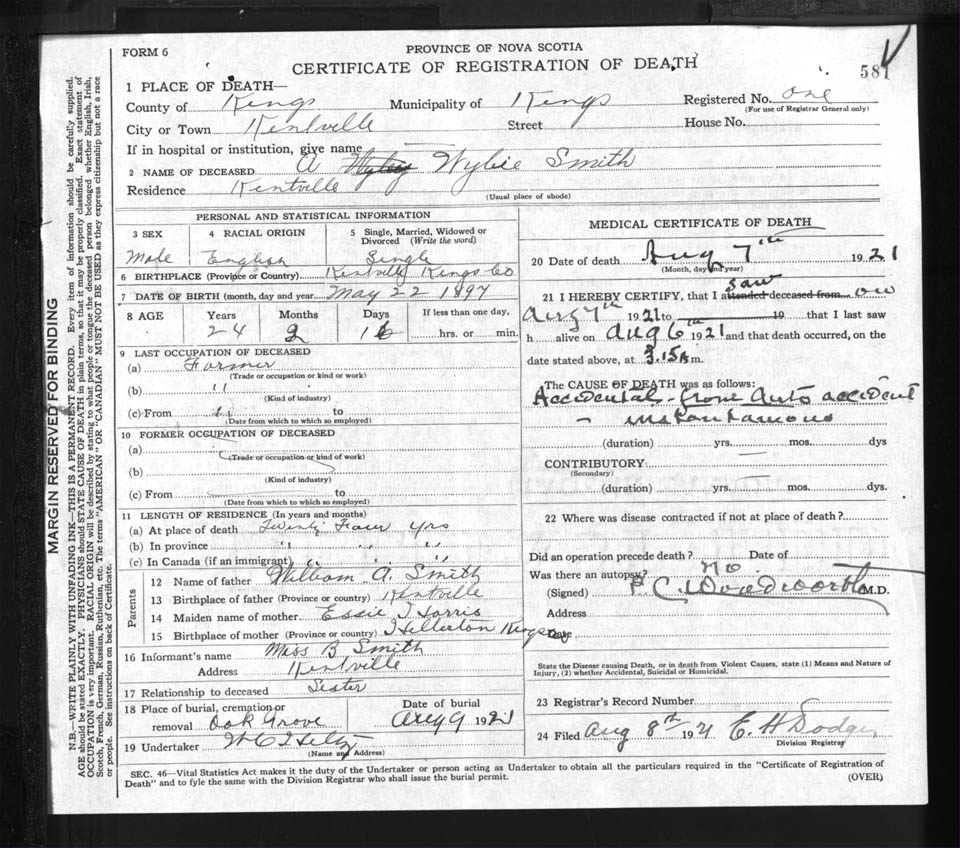 FORM 6
PROVINCE OF NOVA SCOTIA
CERTIFICATE OF REGISTRATION OF DEATH
581
1 PLACE OF DEATH—
County of Kings Municipality of Kings Registered No. one
(For use of Registrar General only)
City or Town Kentville Street House No.
If in hospital or institution, give name
2 NAME OF DECEASED A Wylie Smith
Residence Kentville
(Usual place of abode)
PERSONAL AND STATISTICAL INFORMATION
3 SEX 4 RACIAL ORIGIN 5 Single, Married, Widowed or Divorced (Write the word)
Male English Single
6 BIRTHPLACE (Province or Country) Kentville Kings Co
7 DATE OF BIRTH (month, day and year) May 22 1897
8 AGE Years Months Days If less than one day,
24 2 16 hrs. or min.
9 LAST OCCUPATION OF DECEASED
(a) Farmer
(Trade or occupation or kind or work)
(b) "
(Kind of industry)
(c) From " to
(Date from which to which so employed)
10 FORMER OCCUPATION OF DECEASED
(a)
(Trade or occupation or kind of work)
(b)
(Kind of industry)
(c) From to
(Date from which to which so employed)
11 LENGTH OF RESIDENCE (In years and months)
(a) At place of death Twenty Four yrs
(b) In province " " "
(c) In Canada (if an immigrant) " " "
Parents
12 Name of father William A. Smith
13 Birthplace of father (Province or country) Kentville
14 Maiden name of mother Essie Harris
15 Birthplace of mother (Province or country) Kings
16 Informant's name Miss B Smith
Address Kentville
17 Relationship to deceased Sister
18 Place of burial, cremation or removal Oak Grove Date of burial Aug 9 1921
19 Undertaker
(Name and Address)
MEDICAL CERTIFICATE OF DEATH
20 Date of death Aug 7th 1921
(Month, day and year)
21 I HEREBY CERTIFY, that I saw attended deceased from on
Aug 7th 1921 to 19 that I last saw
h alive on Aug 6th 1921 and that death occurred, on the
date stated above, at 3.15 a m.
The CAUSE OF DEATH was as follows:
Accidental - from Auto accident
- instantaneous
(duration) yrs. mos. dys
CONTRIBUTORY
(Secondary)
(duration) yrs. mos. dys.
22 Where was disease contracted if not at place of death?
Did an operation precede death? Date of
Was there an autopsy? no
(Signed) C. Woodworth M.D.
Address
Date
State the Disease causing Death, or in death from Violent Causes, state (1) Means and Nature of Injury, (2) whether Accidental, Suicidal or Homicidal.
23 Registrar's Record Number
24 Filed Aug 8th 1921 E. H Dodge
Division Registrar
SEC. 46—Vital Statistics Act makes it the duty of the Undertaker or person acting as Undertaker to obtain all the particulars required in the "Certificate of Registration of
Death" and to fyle the same with the Division Registrar who shall issue the burial permit. (OVER)
MARGIN RESERVED FOR BINDING
N.B.—WRITE PLAINLY WITH UNFADING INK—THIS IS A PERMANENT RECORD. Every item of information should be carefully supplied.
AGE should be stated EXACTLY. PHYSICIANS should STATE CAUSE OF DEATH in plain terms, so that it may be properly classified. Exact statement of
OCCUPATION is very important. RACIAL ORIGIN will be described by stating to what people or tongue the deceased person belonged whether English, Irish,
Scotch, French, German, Russian, Ruthenian, etc. The terms "AMERICAN" OR "CANADIAN" MUST NOT BE USED as they express citizenship but not a race
or people. See instructions on back of Certificate.